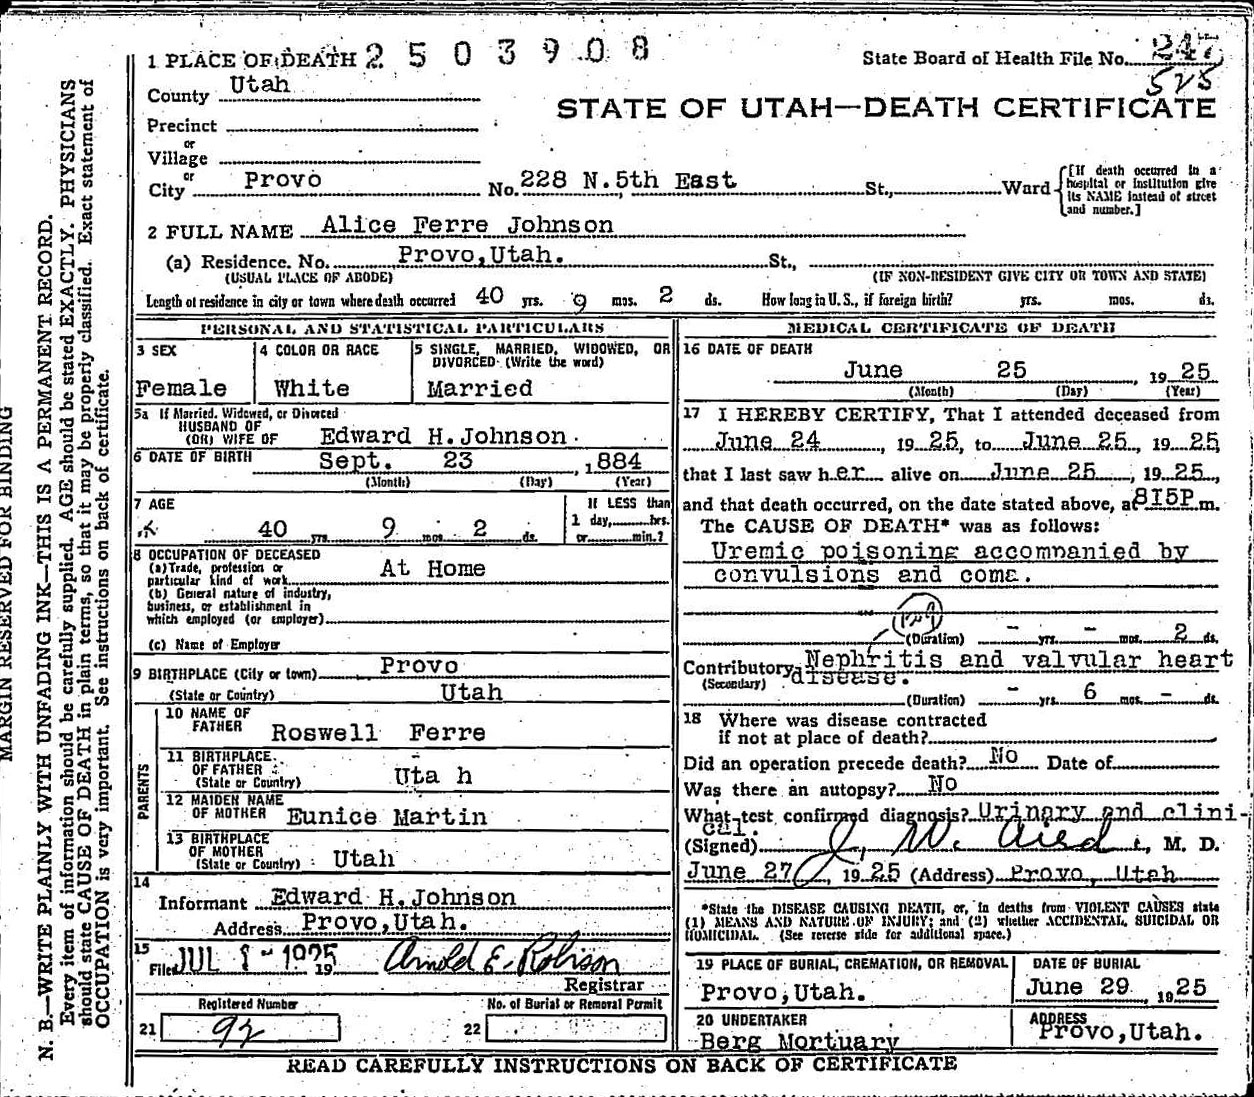 MARGIN RESERVED FOR BINDING
N. B.—WRITE PLAINLY WITH UNFADING INK—THIS IS A PERMANENT RECORD.
Every item of information should be carefully supplied. AGE should be stated EXACTLY. PHYSICIANS
should state CAUSE OF DEATH in plain terms, so that it may be properly classified. Exact statement of
OCCUPATION is very important. See instructions on back of certificate.
1 PLACE OF DEATH 2503908
State Board of Health File No. 247
525
County Utah
STATE OF UTAH—DEATH CERTIFICATE
Precinct
or
Village
or
City Provo No. 228 N.5th East St., Ward
[If death occurred in a
hospital or institution give
its NAME instead of street
and number.]
2 FULL NAME Alice Ferre Johnson
(a) Residence. No. Provo,Utah. St.,
(USUAL PLACE OF ABODE) (IF NON-RESIDENT GIVE CITY OR TOWN AND STATE)
Length of residence in city or town where death occurred 40 yrs. 9 mos. 2 ds. How long in U. S., if foreign birth? yrs. mos. ds.
PERSONAL AND STATISTICAL PARTICULARS
3 SEX
Female
4 COLOR OR RACE
White
5 SINGLE, MARRIED, WIDOWED, OR
DIVORCED (Write the word)
Married
5a If Married, Widowed, or Divorced
HUSBAND OF
(OR) WIFE OF Edward H.Johnson
6 DATE OF BIRTH Sept. 23 , 1884
(Month) (Day) (Year)
7 AGE
40 yrs. 9 mos. 2 ds.
If LESS than
1 day, hrs.
or min.?
8 OCCUPATION OF DECEASED
(a) Trade, profession or
particular kind of work At Home
(b) General nature of industry,
business, or establishment in
which employed (or employer)
(c) Name of Employer
9 BIRTHPLACE (City or town) Provo
(State or Country) Utah
PARENTS
10 NAME OF
FATHER Roswell Ferre
11 BIRTHPLACE
OF FATHER
(State or Country) Uta h
12 MAIDEN NAME
OF MOTHER Eunice Martin
13 BIRTHPLACE
OF MOTHER
(State or Country) Utah
14
Informant Edward H.Johnson
Address Provo,Utah.
15
Filed JUL 1 - 1925 19 Arnold E. Robison
Registrar
Registered Number
21 92
No. of Burial or Removal Permit
22
MEDICAL CERTIFICATE OF DEATH
16 DATE OF DEATH
June 25 , 1925
(Month) (Day) (Year)
17 I HEREBY CERTIFY, That I attended deceased from
June 24 , 1925, to June 25, 1925
that I last saw her alive on June 25, 1925,
and that death occurred, on the date stated above, at 815P m.
The CAUSE OF DEATH* was as follows:
Uremic poisoning accompanied by
convulsions and coma.
129
(Duration) - yrs. - mos. 2 ds.
Contributory Nephritis and valvular heart
(Secondary) disease.
(Duration) - yrs. 6 mos. - ds.
18 Where was disease contracted
if not at place of death?
Did an operation precede death? No Date of
Was there an autopsy? No
What test confirmed diagnosis? Urinary and clini-
cal.
(Signed) J. W. Aird , M. D.
June 27 , 1925 (Address) Provo, Utah
*State the DISEASE CAUSING DEATH, or, in deaths from VIOLENT CAUSES state
(1) MEANS AND NATURE OF INJURY; and (2) whether ACCIDENTAL, SUICIDAL OR
HOMICIDAL. (See reverse side for additional space.)
19 PLACE OF BURIAL, CREMATION, OR REMOVAL
Provo,Utah.
DATE OF BURIAL
June 29 , 1925
20 UNDERTAKER
Berg Mortuary
ADDRESS
Provo,Utah.
READ CAREFULLY INSTRUCTIONS ON BACK OF CERTIFICATE